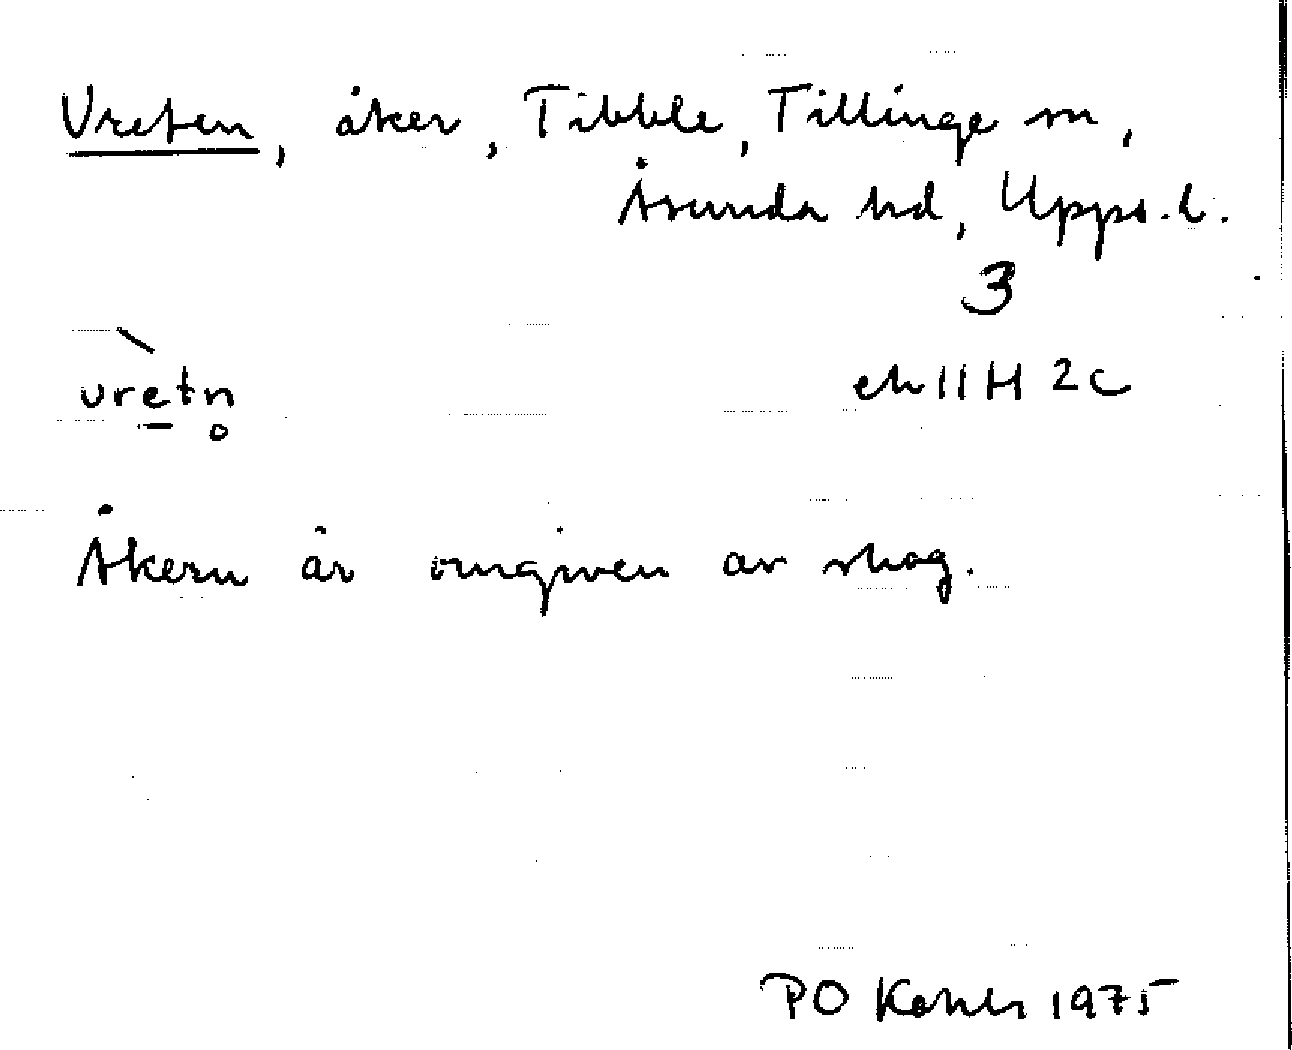 Vreten, åker, Tibble, Tillinge sn,
Åsunda hd, Upps. l.
3
vretn̥
ek 11 H 2c
Åkern är omgiven av skog.
PO 1975